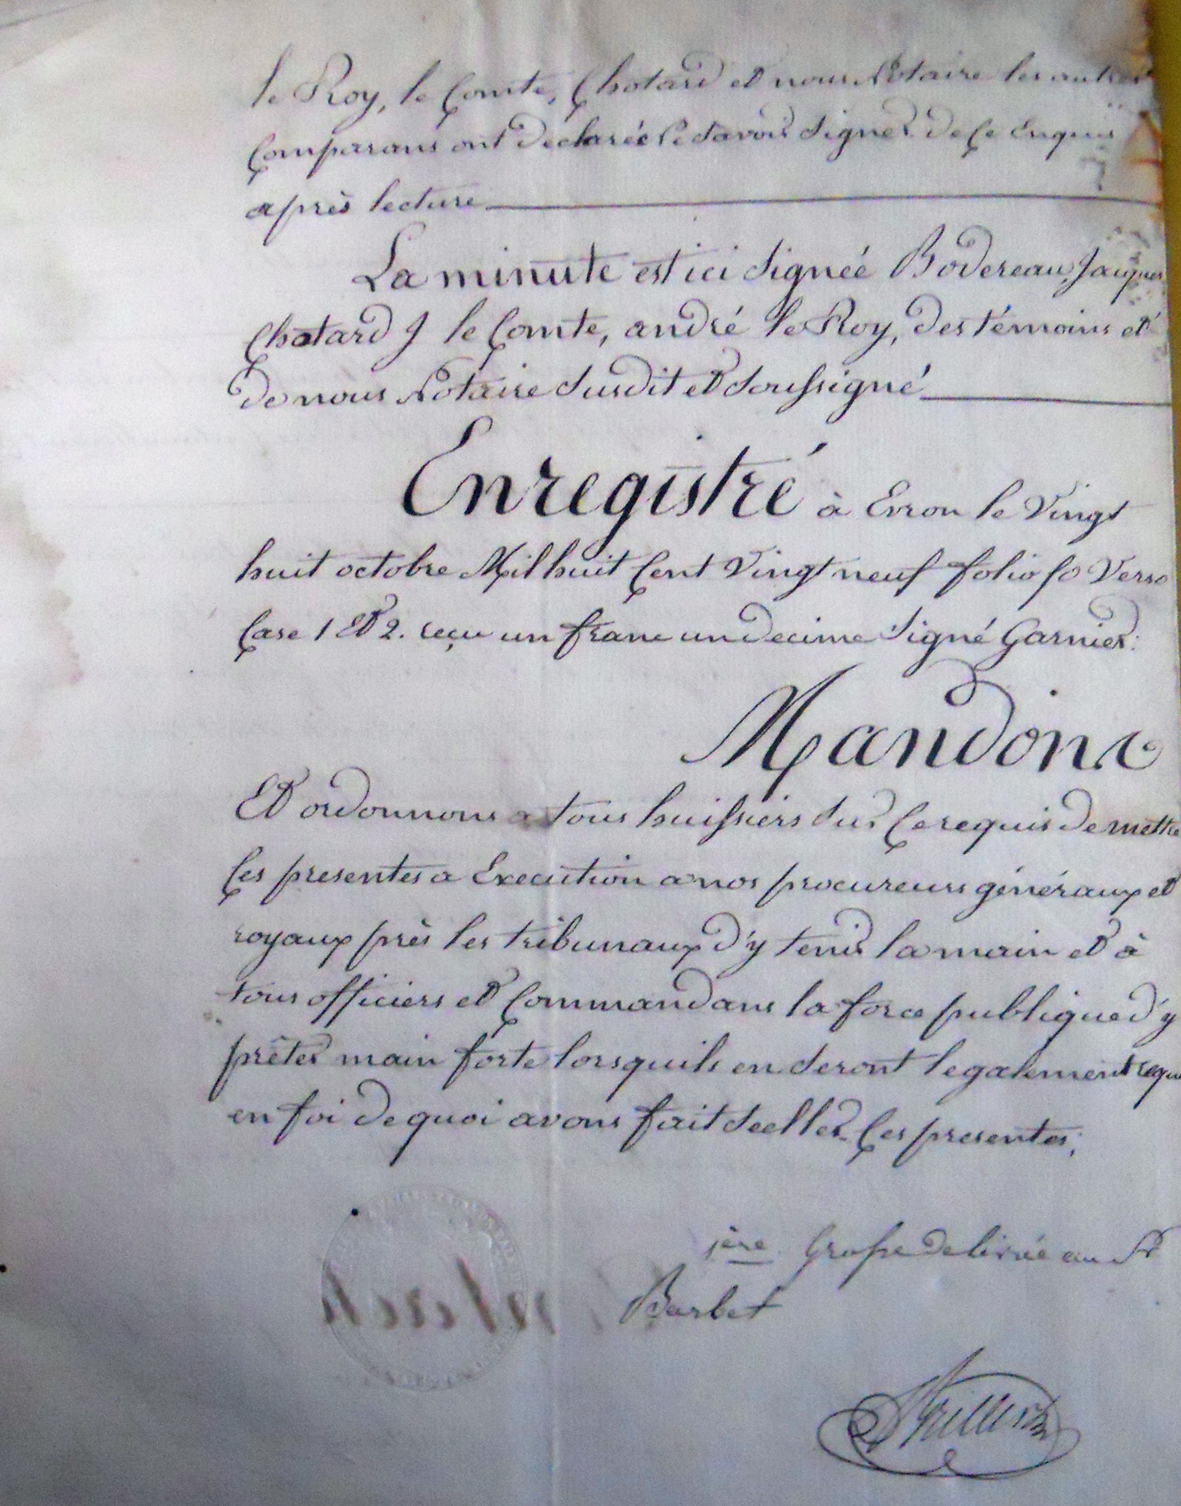 le Roy, le Comte, Chotard et nous Notaire les autres
Comparans ont declaré ne savoir signer de ce enquis
après lecture
La minute est ici signée Bodereau, Jacques
Chotard J le Comte, andré le Roy, des témoins et
de nous Notaire susdit et soussigné
Enregistré à Evron le Vingt
huit octobre Mil huit Cent Vingt neuf folio 50 Verso
Case 1 et 2. reçu un franc un decime signé Garnier:
Mandons
Et ordonnons a tous huissiers sur Ce requis de mettre
Ces presentes a Execution a nos procureurs généraux et
royaux près les tribunaux d'y tenir la main et à
tous officiers et Commandans la force publique d'y
prêter main forte lorsquils en seront legalement requis
en foi de quoi avons fait sceller Ces presentes;
1ère Grosse delivrée au Sr
Barbet